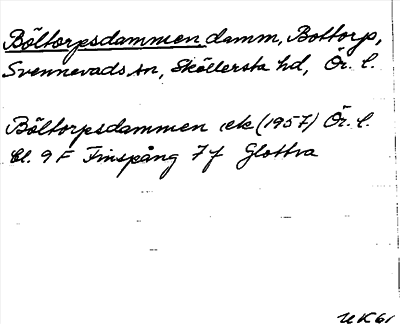 Böltorpsdammen, damm, Bottorp,
Svennevads sn, Sköllersta hd, Ör. l.
Böltorpsdammen ek (1957) Ör. l.
Bl. 9 F Finspång 7 f Glottra
UK61